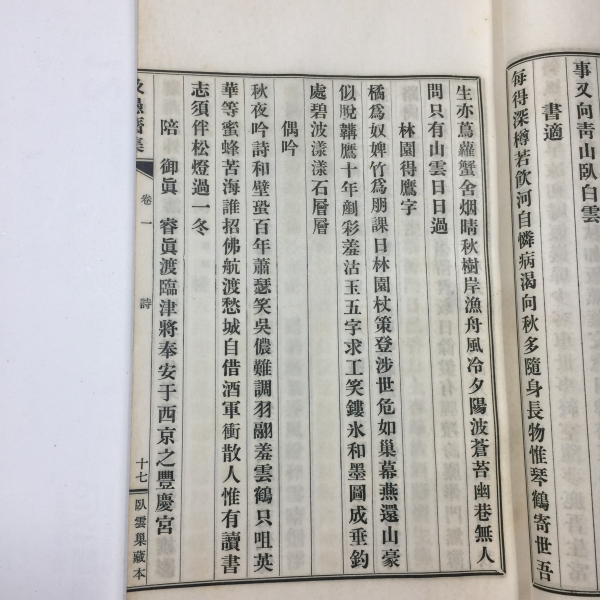 事又向靑山臥白雲
書適
每得深樽若飮河自憐病渴向秋多隨身長物惟琴鶴寄世吾
生亦蔦蘿蟹舍烟晴秋樹岸漁舟風冷夕陽波蒼苔幽巷無人
問只有山雲日日過
林園得鷹字
橘爲奴婢竹爲朋課日林園杖策登涉世危如巢幕燕還山豪
似脫韝鷹十年剷彩羞沽玉五字求工笑鏤氷和墨圖成垂釣
處碧波漾漾石層層
偶吟
秋夜吟詩和壁蛩百年蕭瑟笑吳儂難調羽翮羞雲鶴只咀英
華等蜜蜂苦海誰招佛航渡愁城自借酒軍衝散人惟有讀書
志須伴松燈過一冬
陪 御眞 睿眞渡臨津將奉安于西京之豐慶宮
集
卷一 詩
十七 臥雲巢藏本